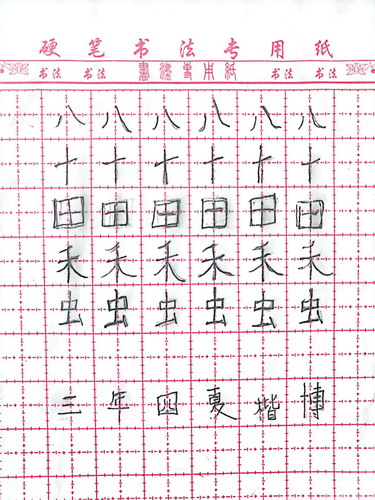 硬笔书法专用纸
书法 书法 書法专用紙 书法 书法
八八八八八八
十十十十十十
田田田田田田
禾禾禾禾禾禾
虫虫虫虫虫虫
三年四夏楷博